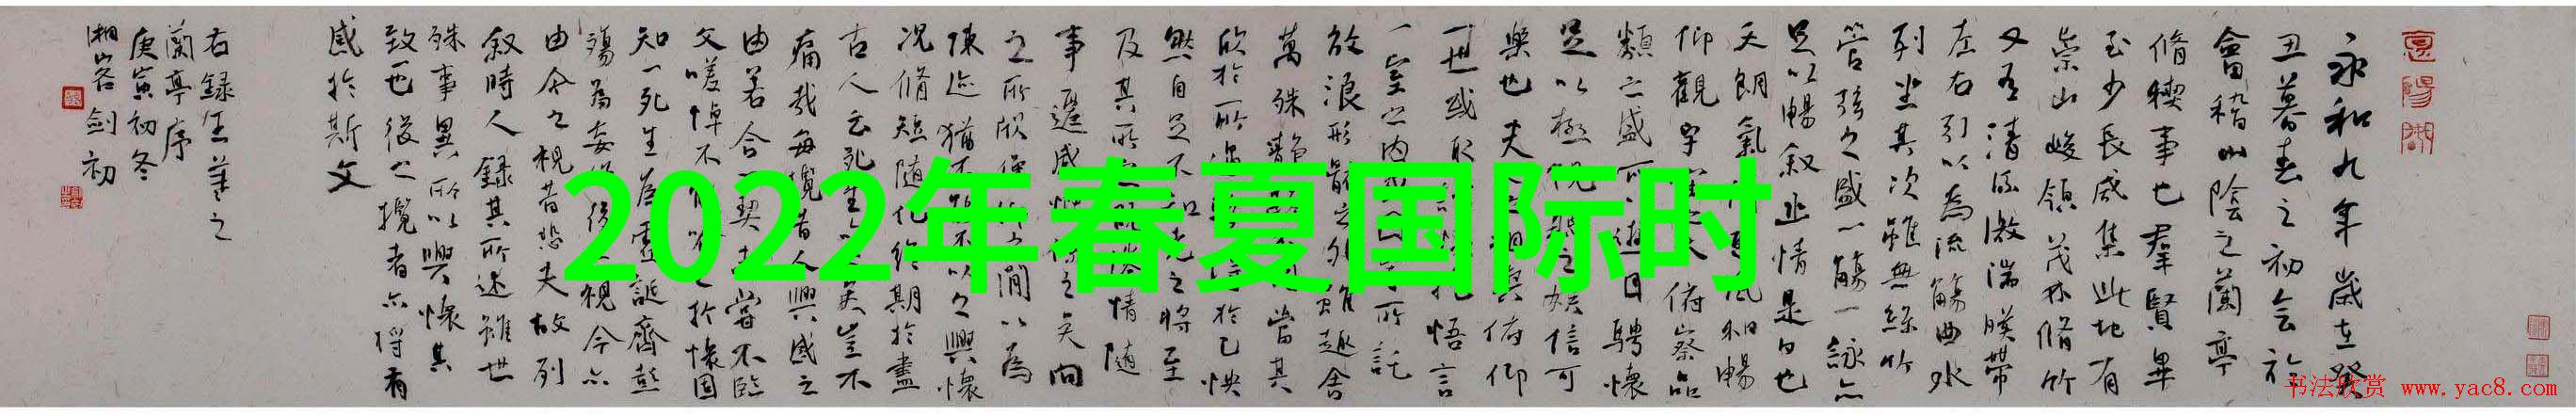 永和九年歲在癸
丑暮春之初会於
會稽山陰之蘭亭
脩稧事也羣賢畢
至少長咸集此地有
崇山峻領茂林脩竹
又有清流激湍暎帶
左右引以為流觴曲水
列坐其次雖無絲竹
管弦之盛一觴一詠亦
足以暢叙幽情是日也
天朗氣風和暢
仰觀宇之大俯察品
類之盛可以遊目騁懷
足以極視之娛信可
樂也夫相與俯仰
一世或取悟言
一室之内所託
放浪形骸之外雖趣舍
萬殊靜當其
欣於所得於己快
然自足不知老之將至
及其所之情随
事遷感慨係之矣向
之所欣俛仰之間以為
陳迹猶不能不以之興懷
況脩短随化終期於盡
古人云死生亦大矣豈不
痛哉每攬昔人興感之
由若合一契未嘗不臨
文嗟悼不能喻之於懷固
知一死生為虛誕齊彭
殤為妄作後之視今亦
由今之視昔悲夫故列
叙時人録其所述雖世
殊事異所以興懷其
致一也後之攬者亦将有
感於斯文
右録王羲之
蘭亭序
庚寅初冬
湘客剑初
2022年春夏国际时
书法欣赏 www.yac8.com